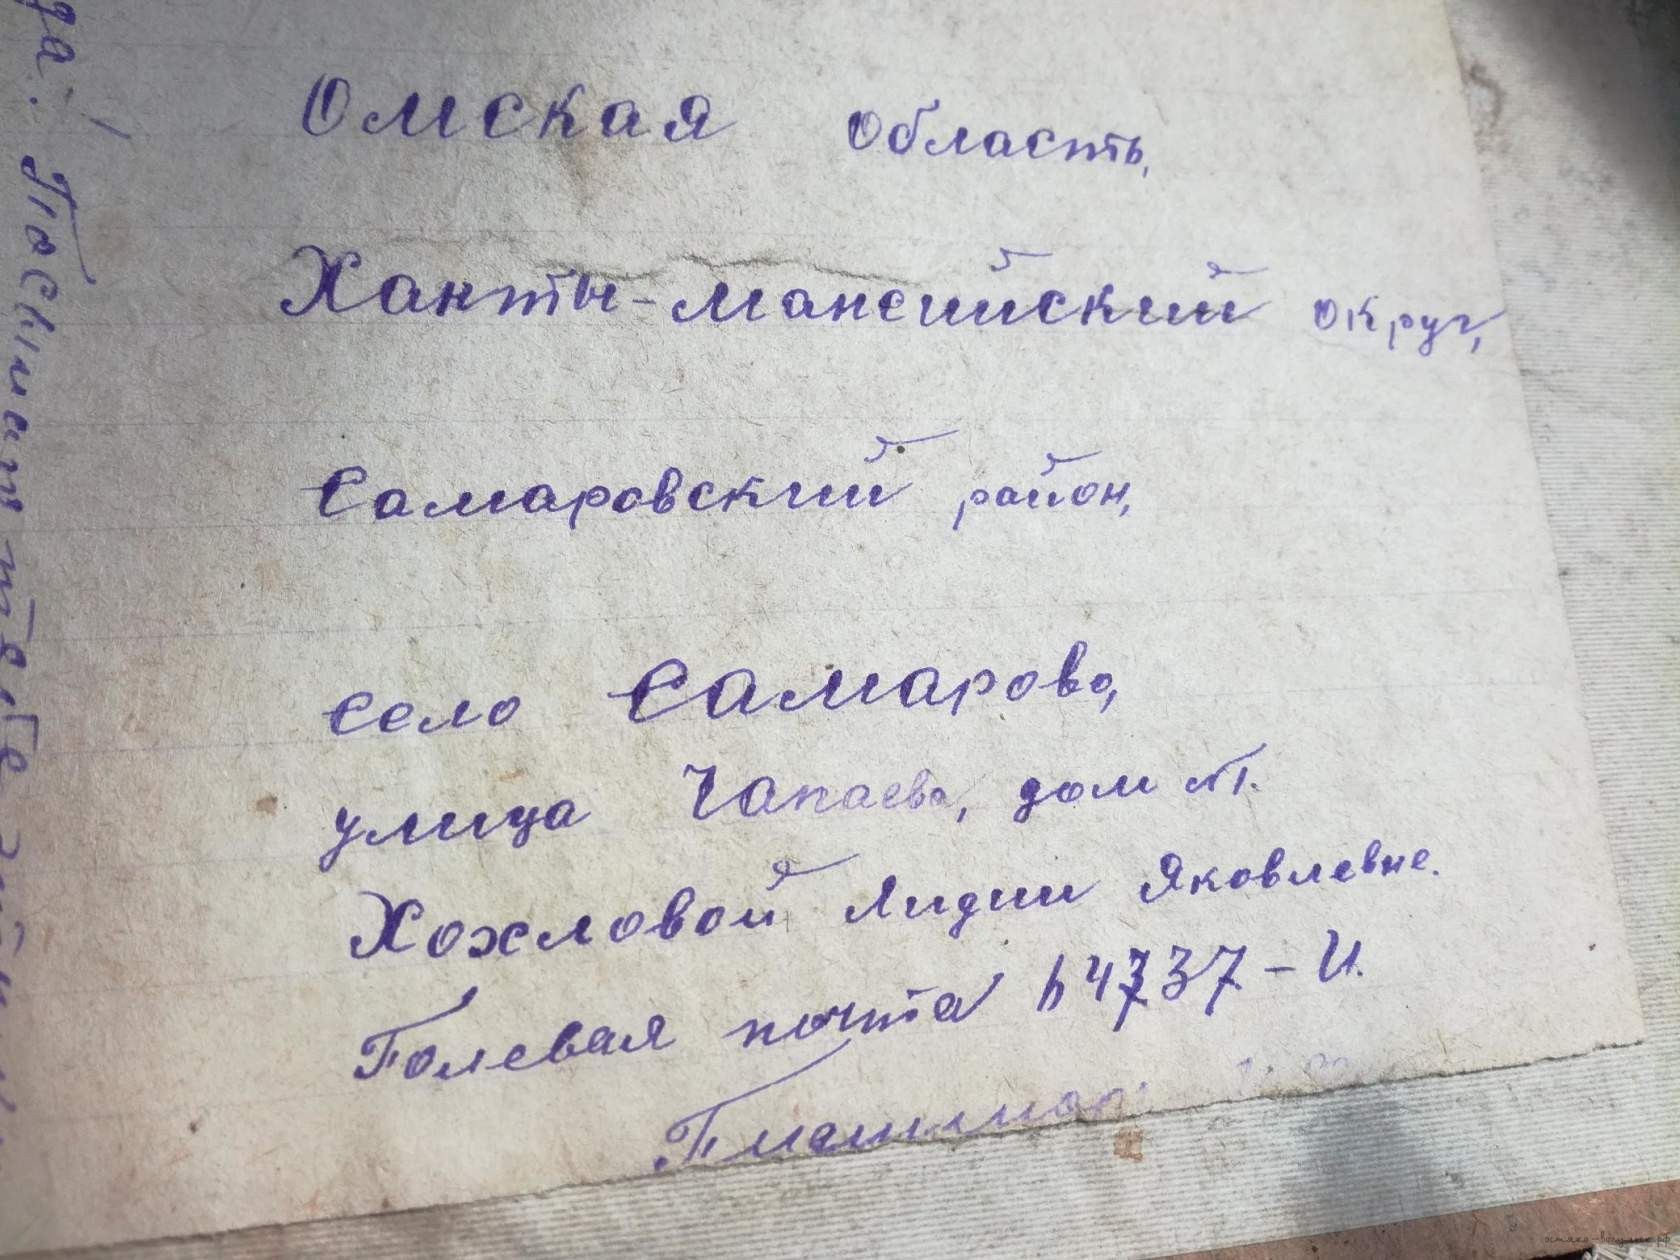 Омская область,
Ханты-Мансийский округ,
Самаровский район,
село Самарово,
улица Чапаева, дом №1.
Хохловой Лидии Яковлевне.
Полевая почта 64737-И.
да!
остяко-вогульск.рф